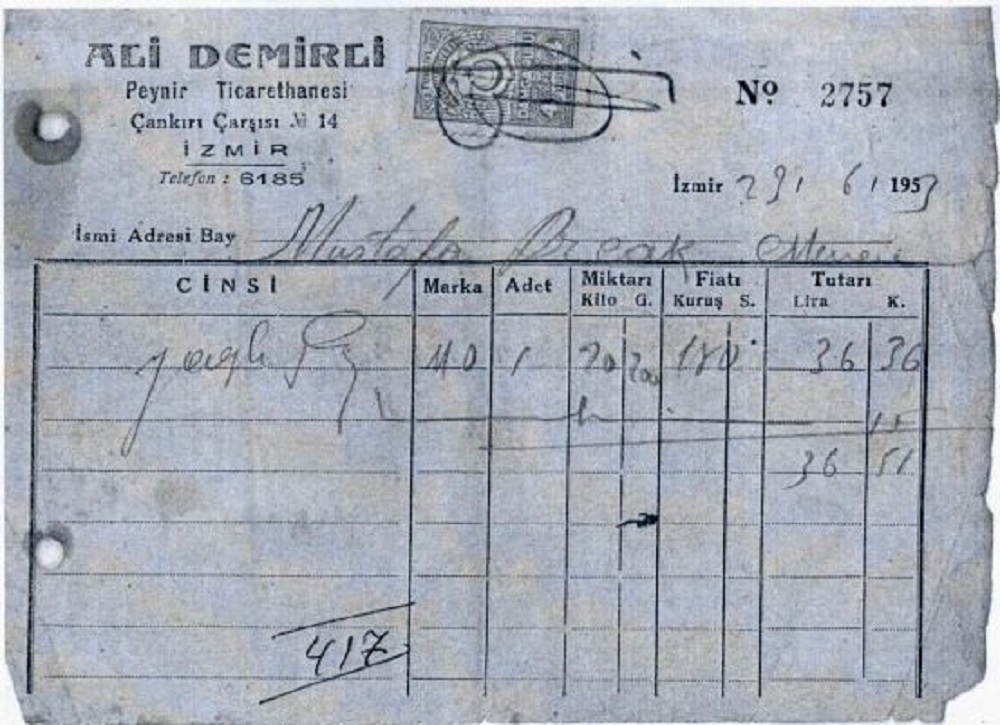 ALİ DEMİRLİ
Peynir Ticarethanesi
Çankırı Çarşısı № 14
İZMİR
Telefon : 6185
Nº 2757
İzmir 23 / 6 / 1953
İsmi Adresi Bay Mustafa
CİNSİ Marka Adet Miktarı Fiatı Tutarı
Kilo G. Kuruş S. Lira K.
yağlı Pey M.D 1 20 200 180 36 36
15
36 51
417